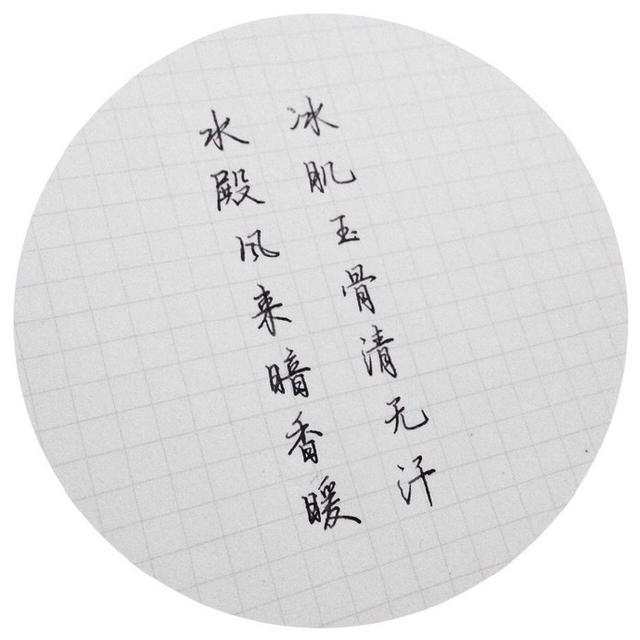 冰肌玉骨清无汗
水殿风来暗香暖